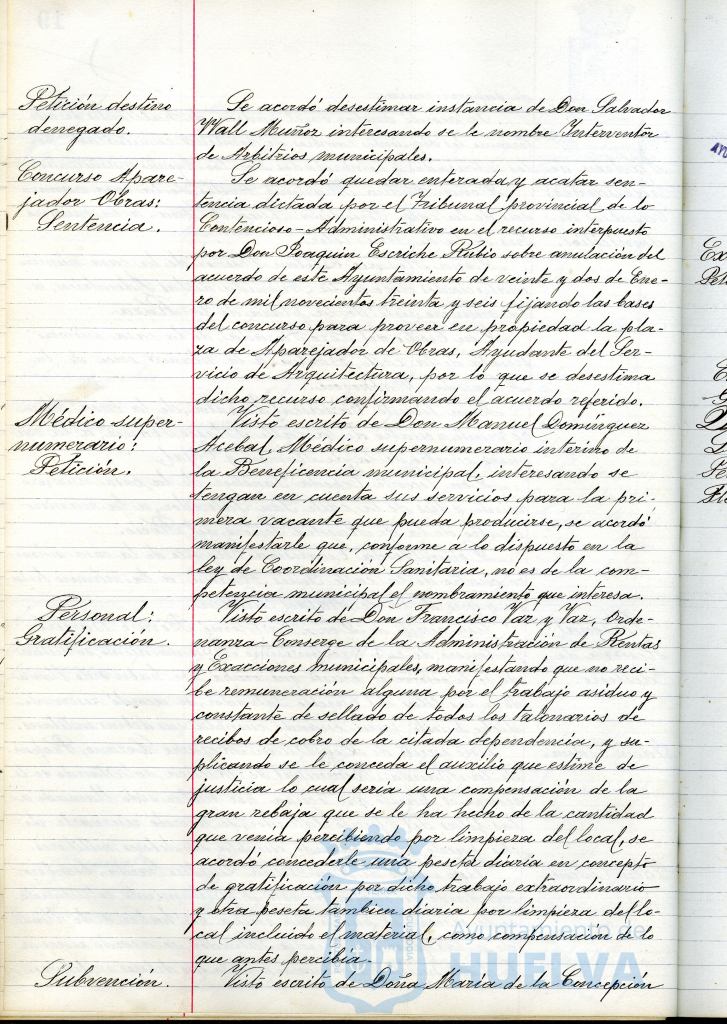 Petición destino
denegado.
Se acordó desestimar instancia de Don Salvador
Wall Muñoz interesando se le nombre Interventor
de Arbitrios municipales.
Concurso Apare-
jador Obras:
Sentencia.
Se acordó quedar enterada y acatar sen-
tencia dictada por el Tribunal provincial de lo
Contencioso-Administrativo en el recurso interpuesto
por Don Joaquin Escriche Rubio sobre anulación del
acuerdo de este Ayuntamiento de veinte y dos de Ene-
ro de mil novecientos treinta y seis fijando las bases
del concurso para proveer en propiedad la pla-
za de Aparejador de Obras, Ayudante del Ser-
vicio de Arquitectura, por lo que se desestima
dicho recurso confirmando el acuerdo referido.
Médico super-
numerario:
Petición.
Visto escrito de Don Manuel Domínguez
Acebal, Médico supernumerario interino de
la Beneficencia municipal, interesando se
tengan en cuenta sus servicios para la pri-
mera vacante que pueda producirse, se acordó
manifestarle que, conforme a lo dispuesto en la
ley de Coordinación Sanitaria, no es de la com-
petencia municipal el nombramiento que interesa.
Personal:
Gratificación.
Visto escrito de Don Francisco Vaz y Vaz, Orde-
nanza-Conserge de la Administración de Rentas
y Exacciones municipales, manifestando que no reci-
be remuneración alguna por el trabajo asiduo y
constante de sellado de todos los talonarios de
recibos de cobro de la citada dependencia, y su-
plicando se le conceda el auxilio que estime de
justicia lo cual sería una compensación de la
gran rebaja que se le ha hecho de la cantidad
que venía percibiendo por limpieza del local, se
acordó concederle una peseta diaria en concepto
de gratificación por dicho trabajo extraordinario
y otra peseta tambien diaria por limpieza del lo-
cal incluido el material, como compensación de lo
que antes percibia.
Subvención.
Visto escrito de Doña María de la Concepción
Ayuntamiento de
HUELVA